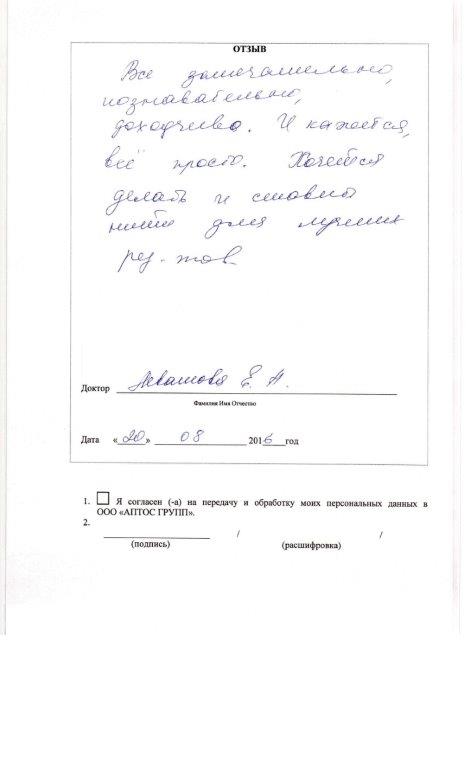 ОТЗЫВ
Все замечательно,
познавательно,
доходчиво. И кажется,
всё просто. Хочется
делать и ставить
нити для лучших
рез-тов
Доктор Левашова Е. А.
Фамилия Имя Отчество
Дата «20» 08 2016 год
1. Я согласен (-а) на передачу и обработку моих персональных данных в
ООО «АПТОС ГРУПП».
2.
/ /
(подпись) (расшифровка)